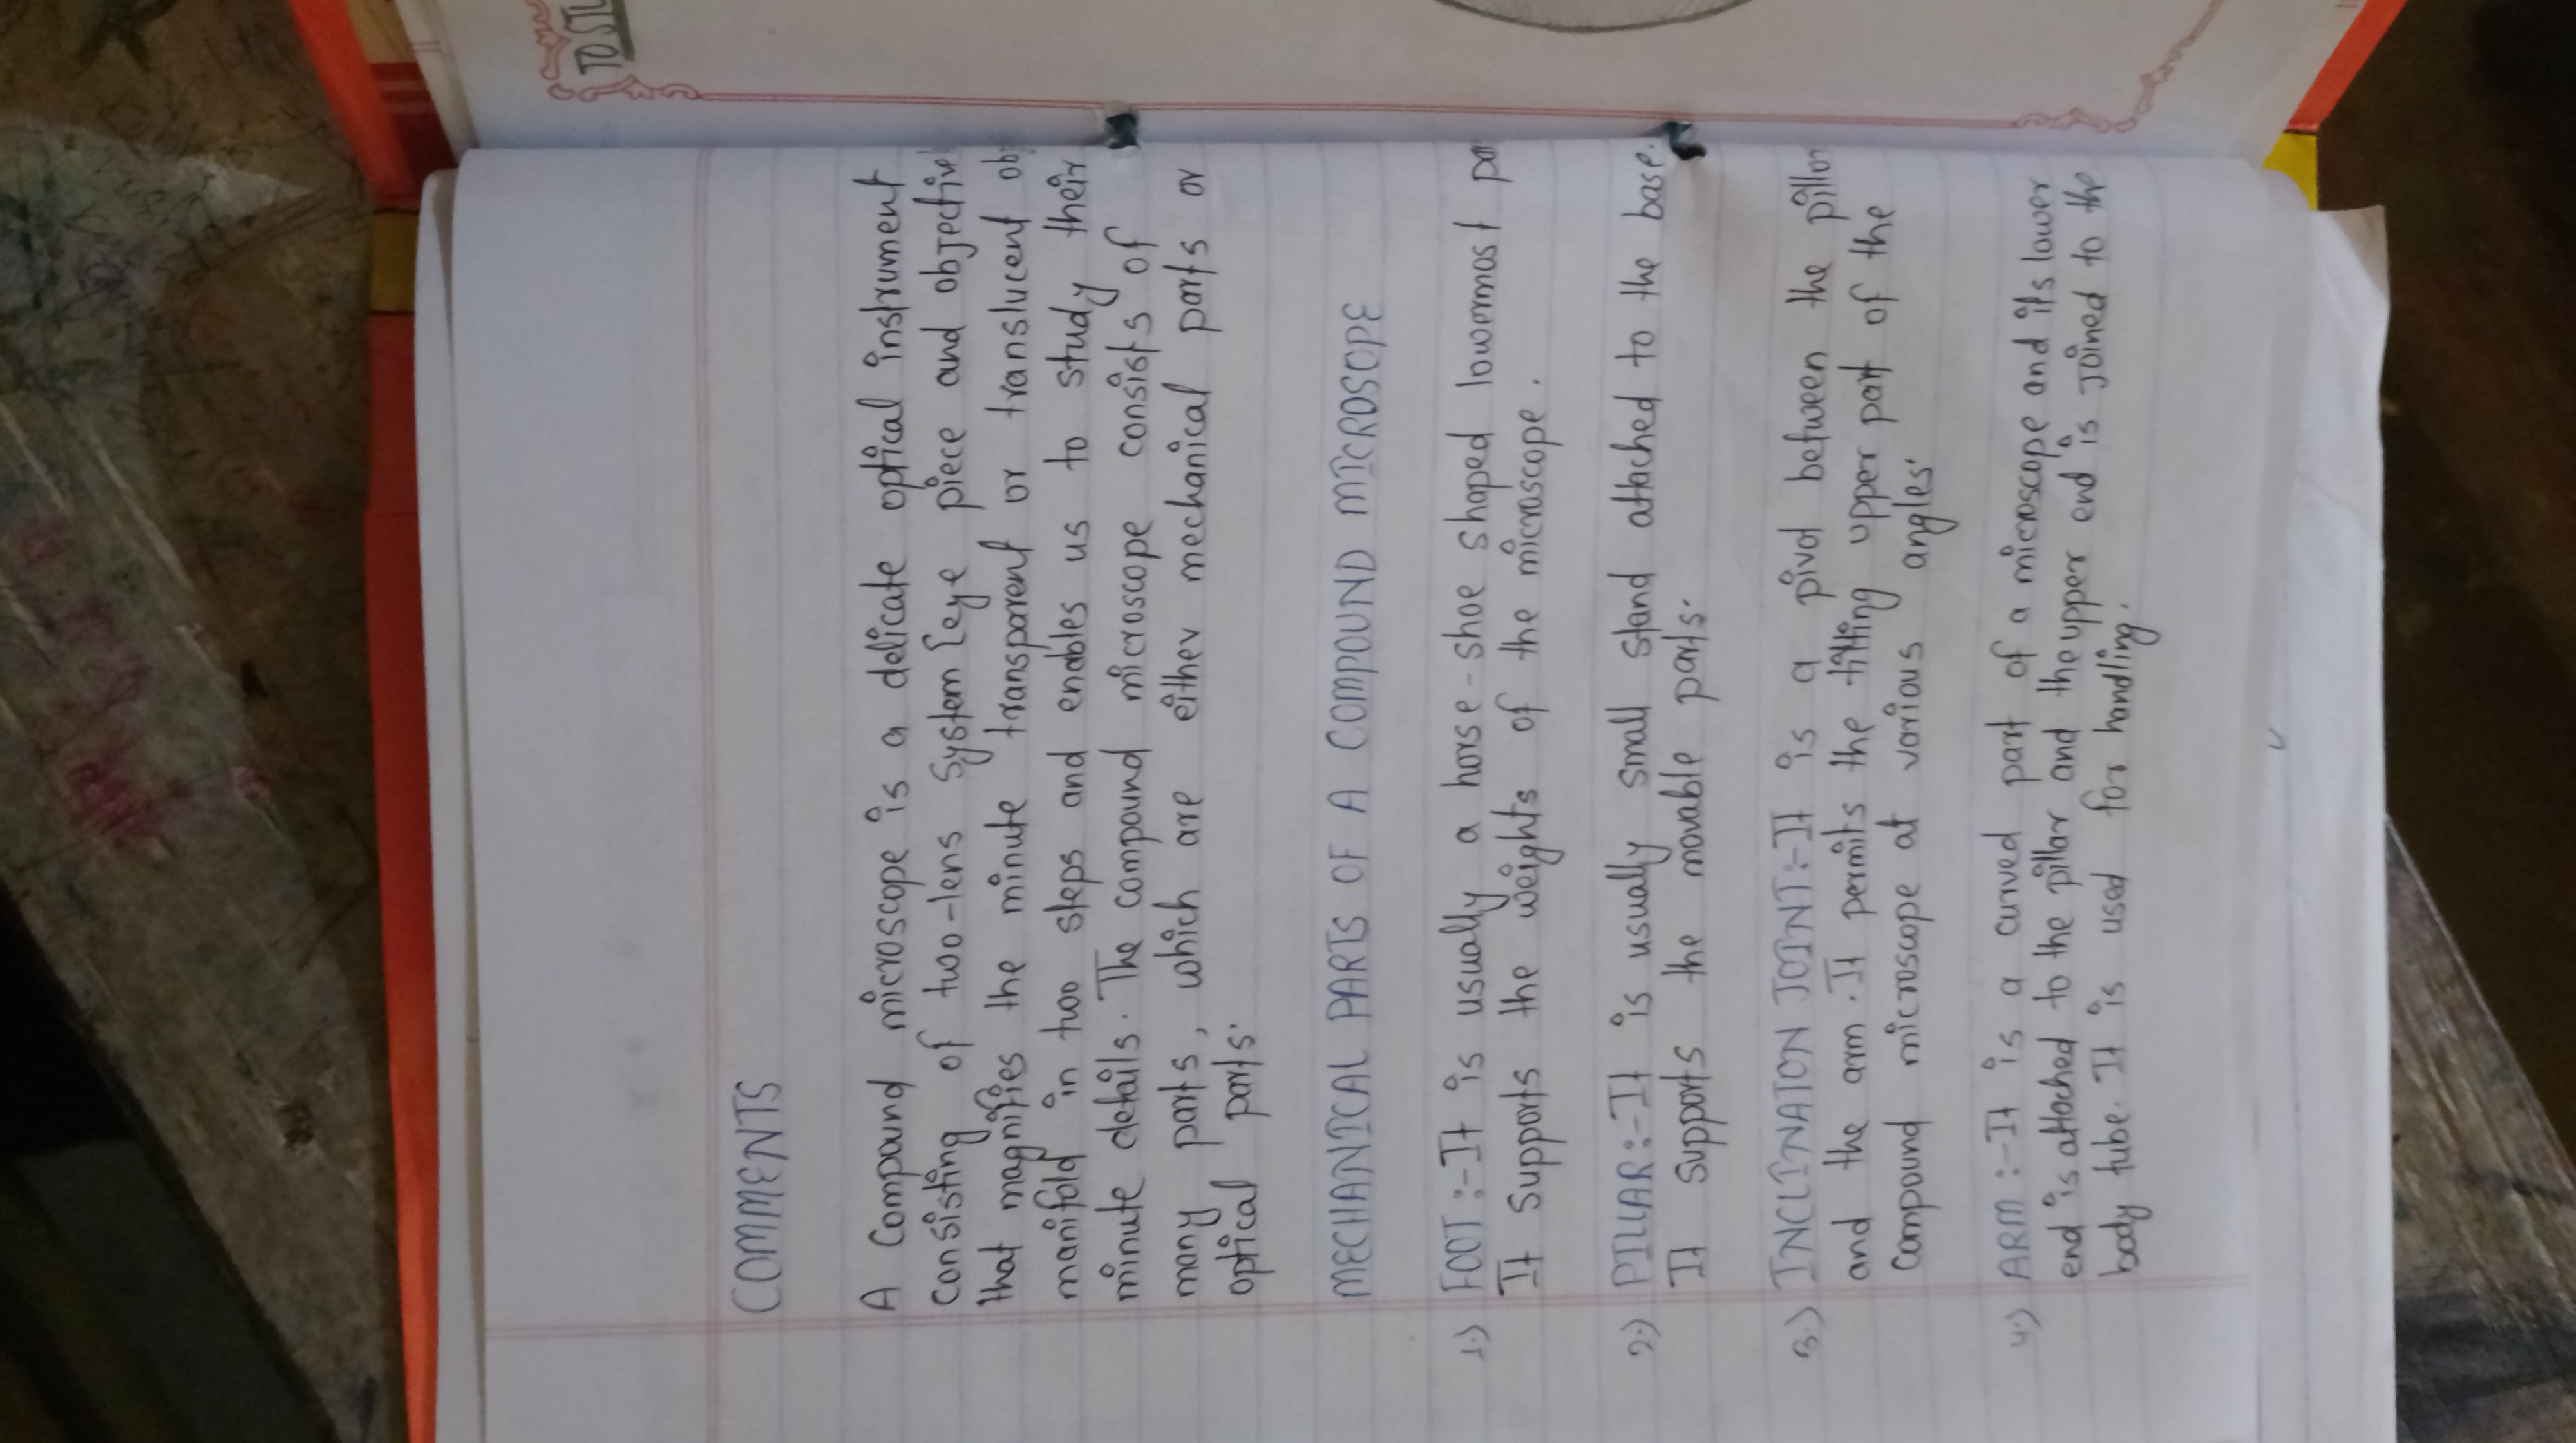 COMMENTS
A Compound microscope is a delicate optical instrument
Consisting of two-lens System [eye piece and objective
that magnifies the minute transparent or translucent obj
manifold in two steps and enables us to study their
minute details. The compound microscope consists of
many parts, which are either mechanical parts or
optical parts.
MECHANICAL PARTS OF A COMPOUND MICROSOPE
1.) FOOT :- It is usually a horse-shoe shaped lowermost par
It Supports the weights of the microscope.
2.) PILLAR :- It is usually small stand attached to the base.
It supports the movable parts.
3.) INCLINATION JOINT :- It is a pivot between the pillar
and the arm. It permits the tilting upper part of the
Compound microscope at various angles.
4.) ARM :- It is a curved part of a microscope and its lower
end is attached to the pillar and the upper end is joined to the
body tube. It is used for handling.
TO STU